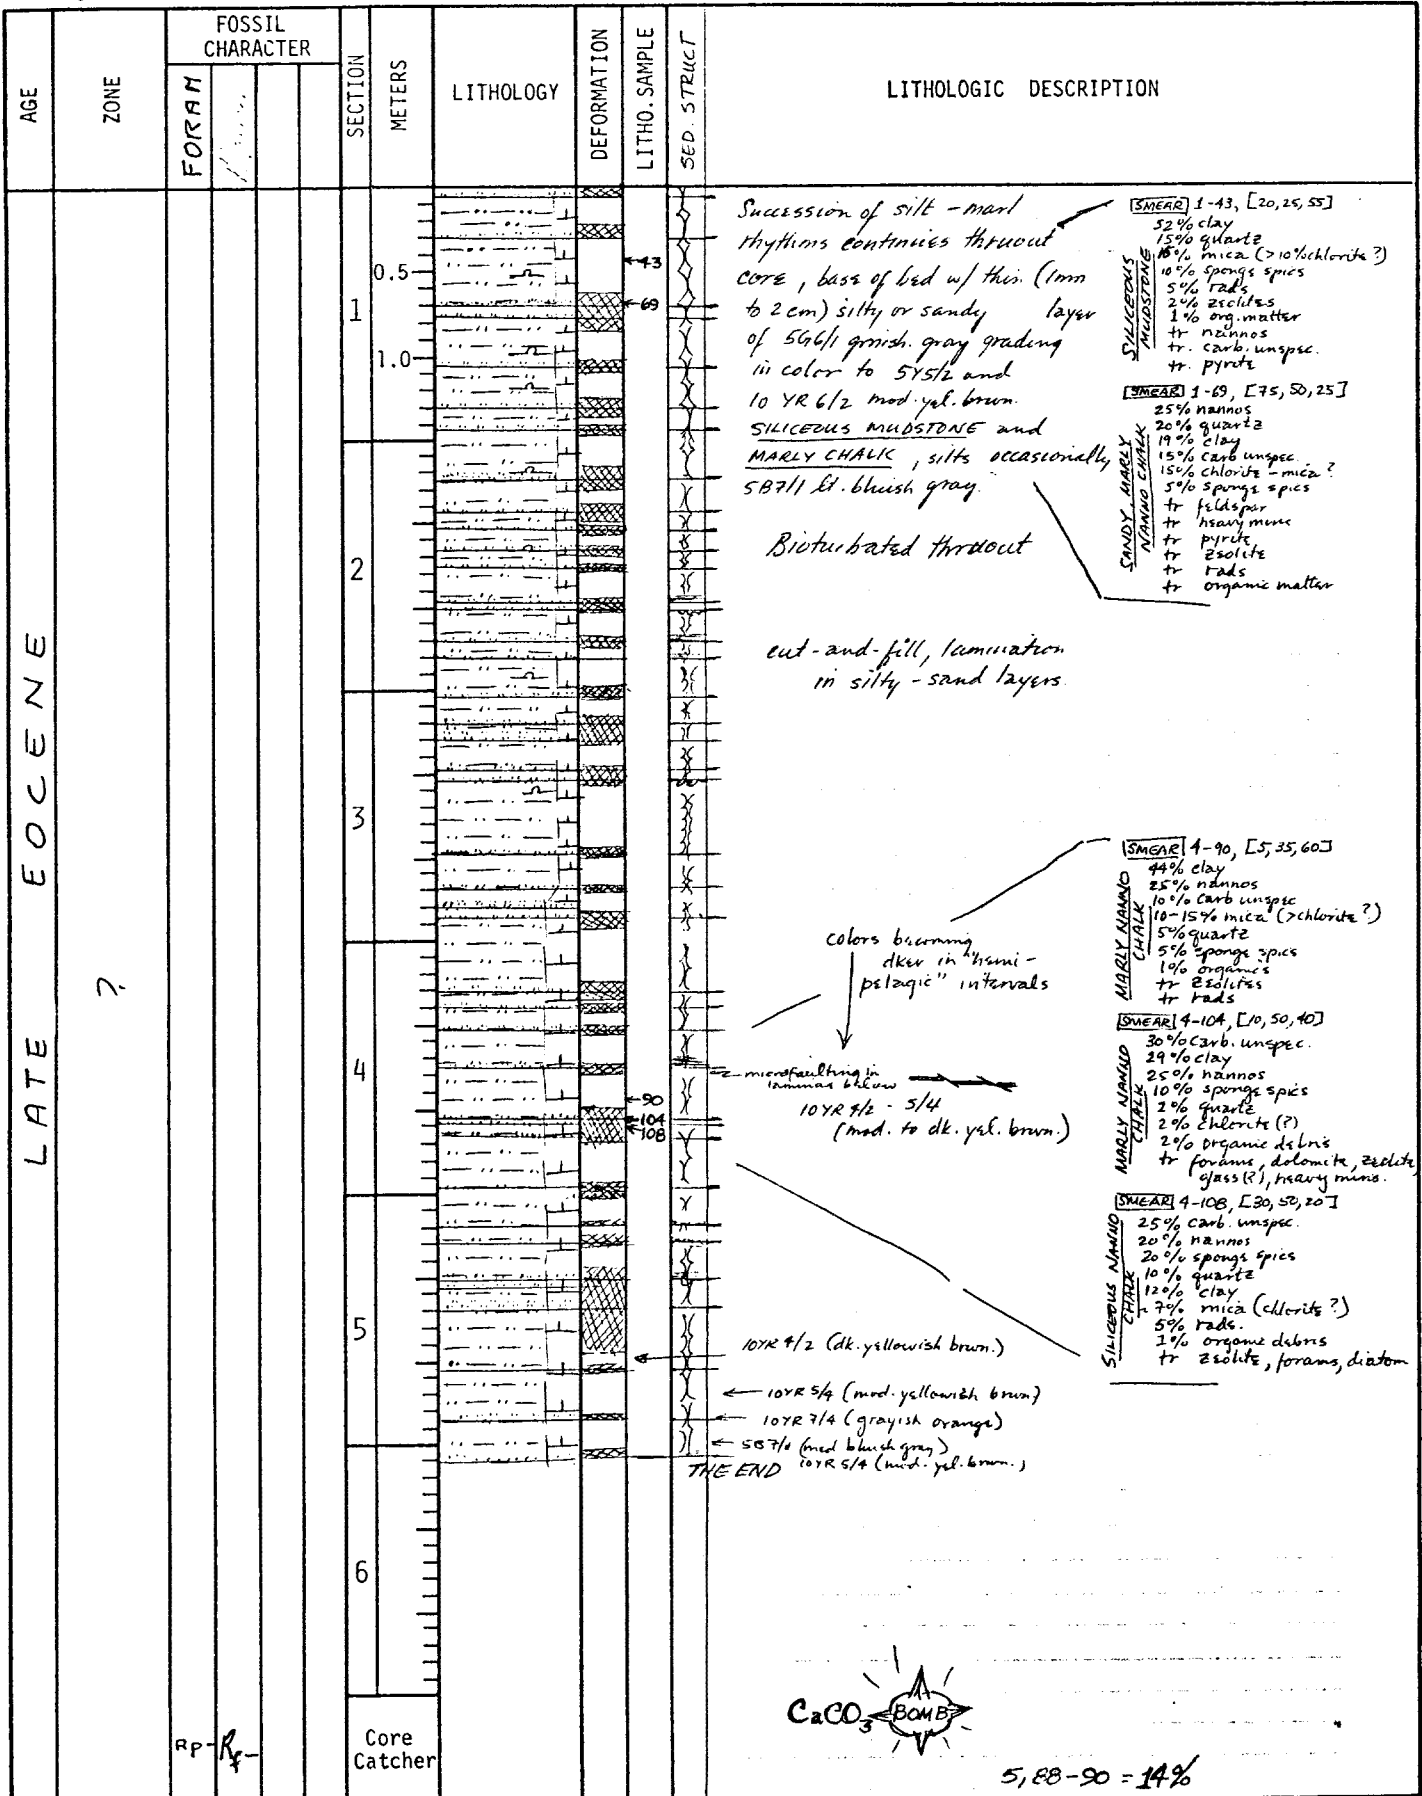 AGE
ZONE
FOSSIL
CHARACTER
FORAM
SECTION
METERS
LITHOLOGY
DEFORMATION
LITHO. SAMPLE
SED. STRUCT
LITHOLOGIC DESCRIPTION
LATE EOCENE
?
1
0.5
1.0
2
3
4
5
6
Core
Catcher
RP
43
69
90
104
108
Succession of silt - marl
rhythms continues thruout
core, base of bed w/ thin (1mm
to 2 cm) silty or sandy layer
of 5G6/1 grnish. gray grading
in color to 5Y5/2 and
10 YR 6/2 mod. yel. brwn.
SILICEOUS MUDSTONE and
MARLY CHALK, silts occasionally
5B7/1 lt. bluish gray.
Bioturbated thruout
cut-and-fill, lamination
in silty - sand layers.
colors becoming
dker in "hemi-
pelagic" intervals
microfaulting in
laminae below
10YR 4/2 - 5/4
(mod. to dk. yel. brwn.)
10YR 4/2 (dk. yellowish brwn.)
10YR 5/4 (mod. yellowish brwn)
10YR 7/4 (grayish orange)
(med bluish gray)
THE END 10YR 5/4 (mod. yel. brwn.)
SMEAR 1-43, [20,25,55]
SILICEOUS
MUDSTONE
52% clay
15% quartz
15% mica (>10% chlorite?)
10% sponge spics
5% rads
2% zeolites
1% org. matter
tr nannos
tr. carb. unspec.
tr. pyrite
SMEAR 1-69, [75,50,25]
SANDY, MARLY
NANNO CHALK
25% nannos
20% quartz
19% clay
15% carb unspec.
15% chlorite - mica?
5% sponge spics
tr feldspar
tr heavy mins
tr pyrite
tr zeolite
tr rads
tr organic matter
SMEAR 4-90, [5,35,60]
MARLY NANNO
CHALK
44% clay
25% nannos
10% carb unspec
10-15% mica (>chlorite?)
5% quartz
5% sponge spics
1% organics
tr zeolites
tr rads
SMEAR 4-104, [10,50,40]
MARLY NANNO
CHALK
30% carb. unspec.
29% clay
25% nannos
10% sponge spics
2% quartz
2% chlorite (?)
2% organic debris
tr forams, dolomite, zeolite,
glass(?), heavy mins.
SMEAR 4-108, [30,50,20]
SILICEOUS NANNO
CHALK
25% carb. unspec.
20% nannos
20% sponge spics
10% quartz
12% clay
7% mica (chlorite?)
5% rads.
1% organic debris
tr zeolite, forams, diatom
CaCO3 BOMB
5, 88-90 = 14%